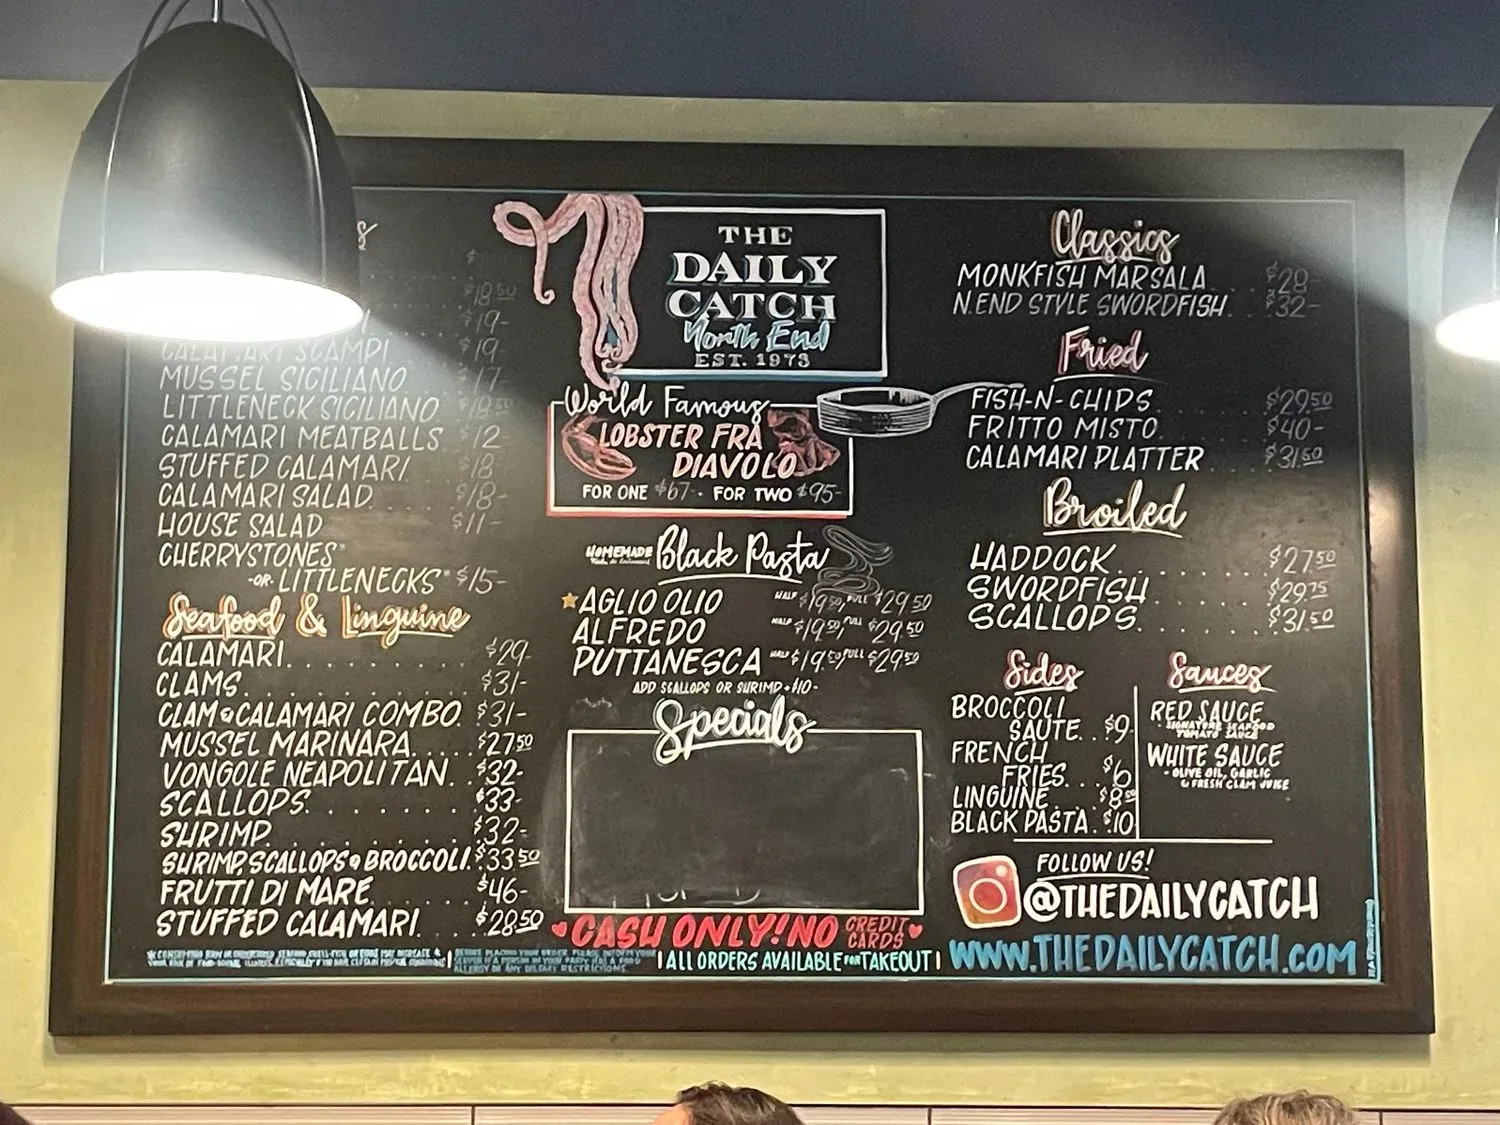 $18.50
$19-
CALAMARI SCAMPI $19
MUSSEL SICILIANO $17
LITTLENECK SICILIANO $18.50
CALAMARI MEATBALLS $12
STUFFED CALAMARI $18
CALAMARI SALAD $18-
HOUSE SALAD $11-
CHERRYSTONES*
-OR- LITTLENECKS* $15-
Seafood & Linguine
CALAMARI. . . . . . . . . . $29-
CLAMS. . . . . . . . . . . . $31-
CLAM & CALAMARI COMBO. $31-
MUSSEL MARINARA. . . . . $27.50
VONGOLE NEAPOLITAN. . $32-
SCALLOPS. . . . . . . . . $33-
SHRIMP. . . . . . . . . . . $32-
SHRIMP, SCALLOPS & BROCCOLI. $33.50
FRUTTI DI MARE. . . . . . $46-
STUFFED CALAMARI. . . $28.50
THE
DAILY
CATCH
North End
EST. 1973
World Famous
LOBSTER FRA
DIAVOLO
FOR ONE $67- . FOR TWO $95-
HOMEMADE Black Pasta
AGLIO OLIO HALF $19.50, FULL $29.50
ALFREDO HALF $19.50, FULL $29.50
PUTTANESCA HALF $19.50, FULL $29.50
ADD SCALLOPS OR SHRIMP + $10-
Specials
CASH ONLY! NO CREDIT CARDS
| ALL ORDERS AVAILABLE FOR TAKEOUT |
Classics
MONKFISH MARSALA $28-
N.END STYLE SWORDFISH. . $32-
Fried
FISH-N-CHIPS . . . . . . $29.50
FRITTO MISTO. . . . . . $40-
CALAMARI PLATTER . . . $31.50
Broiled
HADDOCK. . . . . . . . $27.50
SWORDFISH. . . . . . $29.75
SCALLOPS. . . . . . . $31.50
Sides
BROCCOLI
SAUTE. . $9-
FRENCH
FRIES. . . $6
LINGUINE. . . $8.50
BLACK PASTA. $10
Sauces
RED SAUCE
- SIGNATURE SEAFOOD
TOMATO SAUCE
WHITE SAUCE
- OLIVE OIL, GARLIC
& FRESH CLAM JUICE
FOLLOW US!
@THEDAILYCATCH
WWW.THEDAILYCATCH.COM